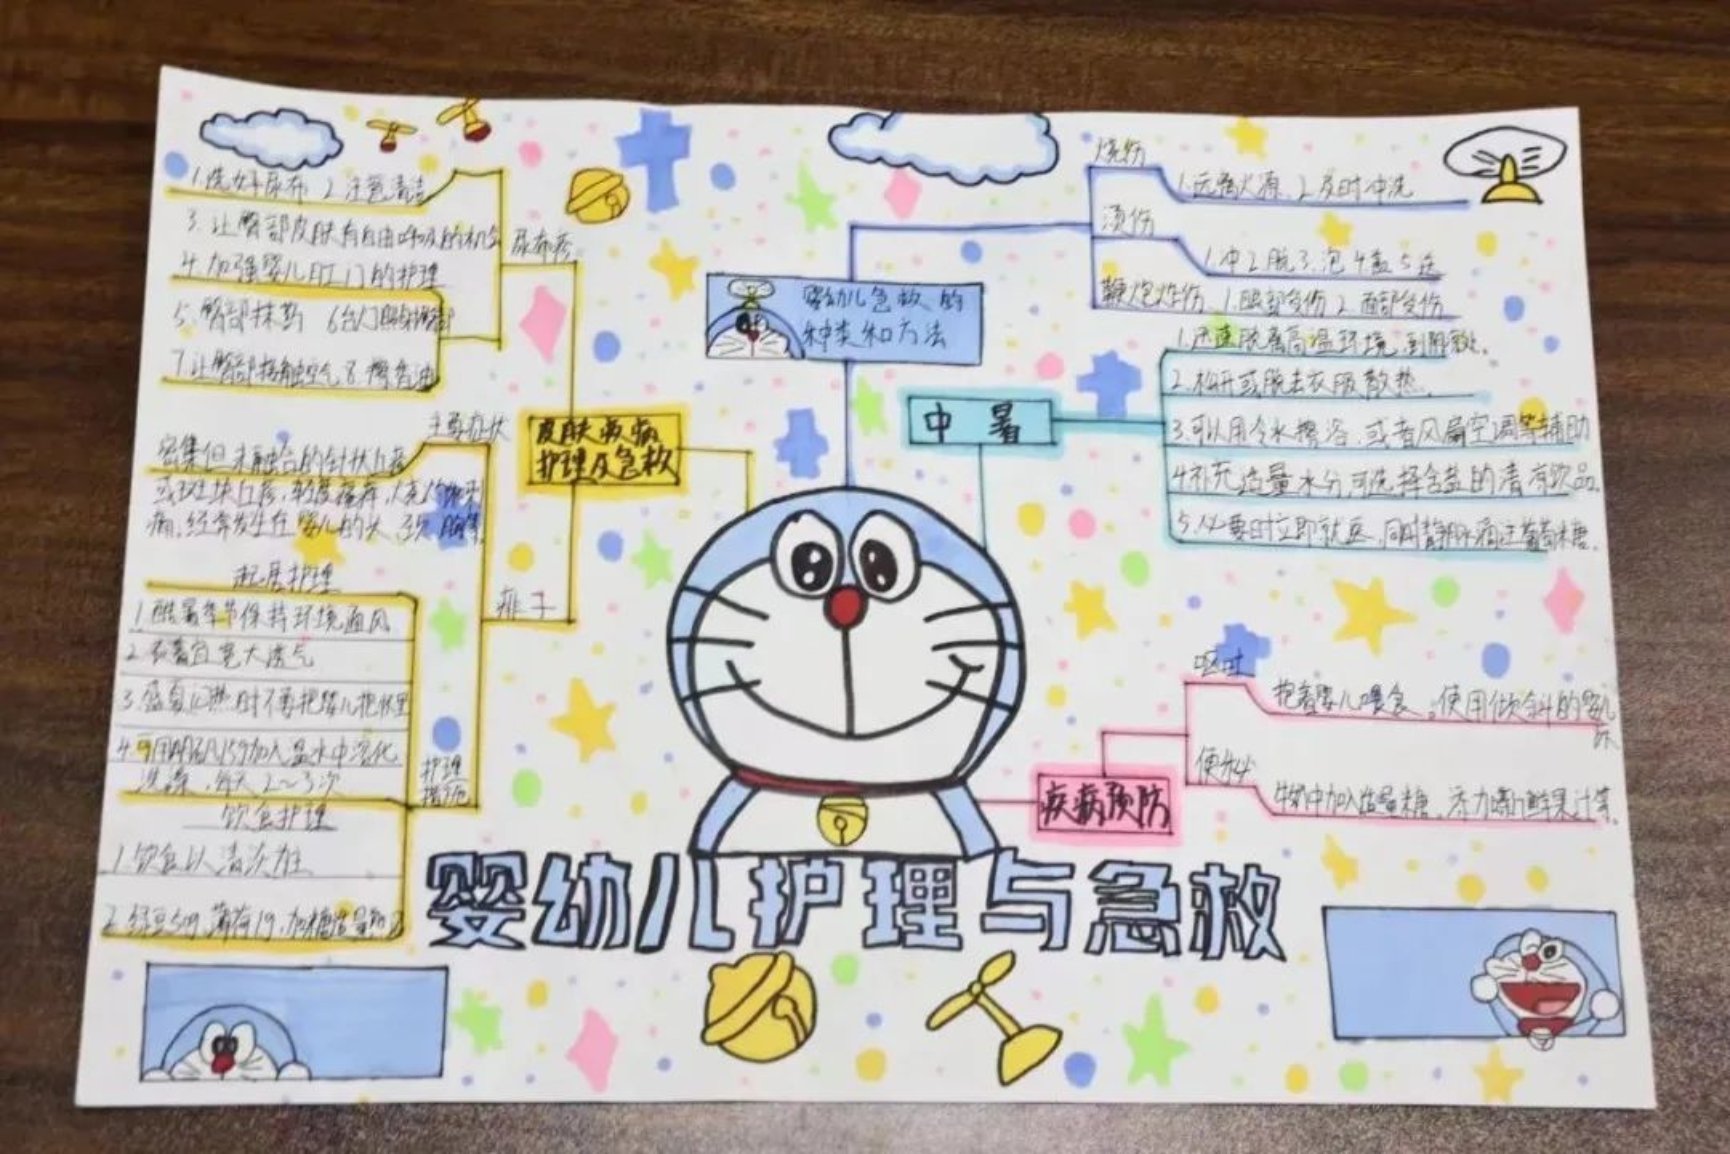 1.洗好尿布 2.注意清洁
3.让臀部皮肤有自由呼吸的机会
4.加强婴儿肛门的护理
5.臀部抹药
7.让臀部接触空气 8.擦香油
尿布疹
皮肤疾病
护理及急救
主要症状
密集但未融合的针状丘疹
痛,经常发生在婴儿的头
痱子
起居护理
1.酷暑季节保持环境通风
2.衣着宜宽大透气
3.盛夏 时不要把婴儿抱怀里
加入温水中溶化
洗澡,每天2~3次
护理
措施
饮食护理
1.饮食以清淡为主
2.绿豆50g,薄荷1g,加糖适量
婴幼儿急救的
种类和方法
烧伤
1.远离火源 2.及时冲洗
烫伤
1.冲2.脱3.泡4.盖5.送
鞭炮炸伤 1.眼部受伤 2.面部受伤
中暑
1.迅速脱离高温环境,到阴凉处。
2.松开或脱去衣服散热。
3.可以用冷水擦浴,或者风扇空调等辅助
4.补充适量水分可选择含盐的清凉饮品。
5.必要时立即就医,同时静脉滴注葡萄糖。
疾病预防
呕吐
抱着婴儿喂食。使用倾斜的婴儿
床
便秘
牛奶中加入适量糖。添加 鲜果汁等。
婴幼儿护理与急救